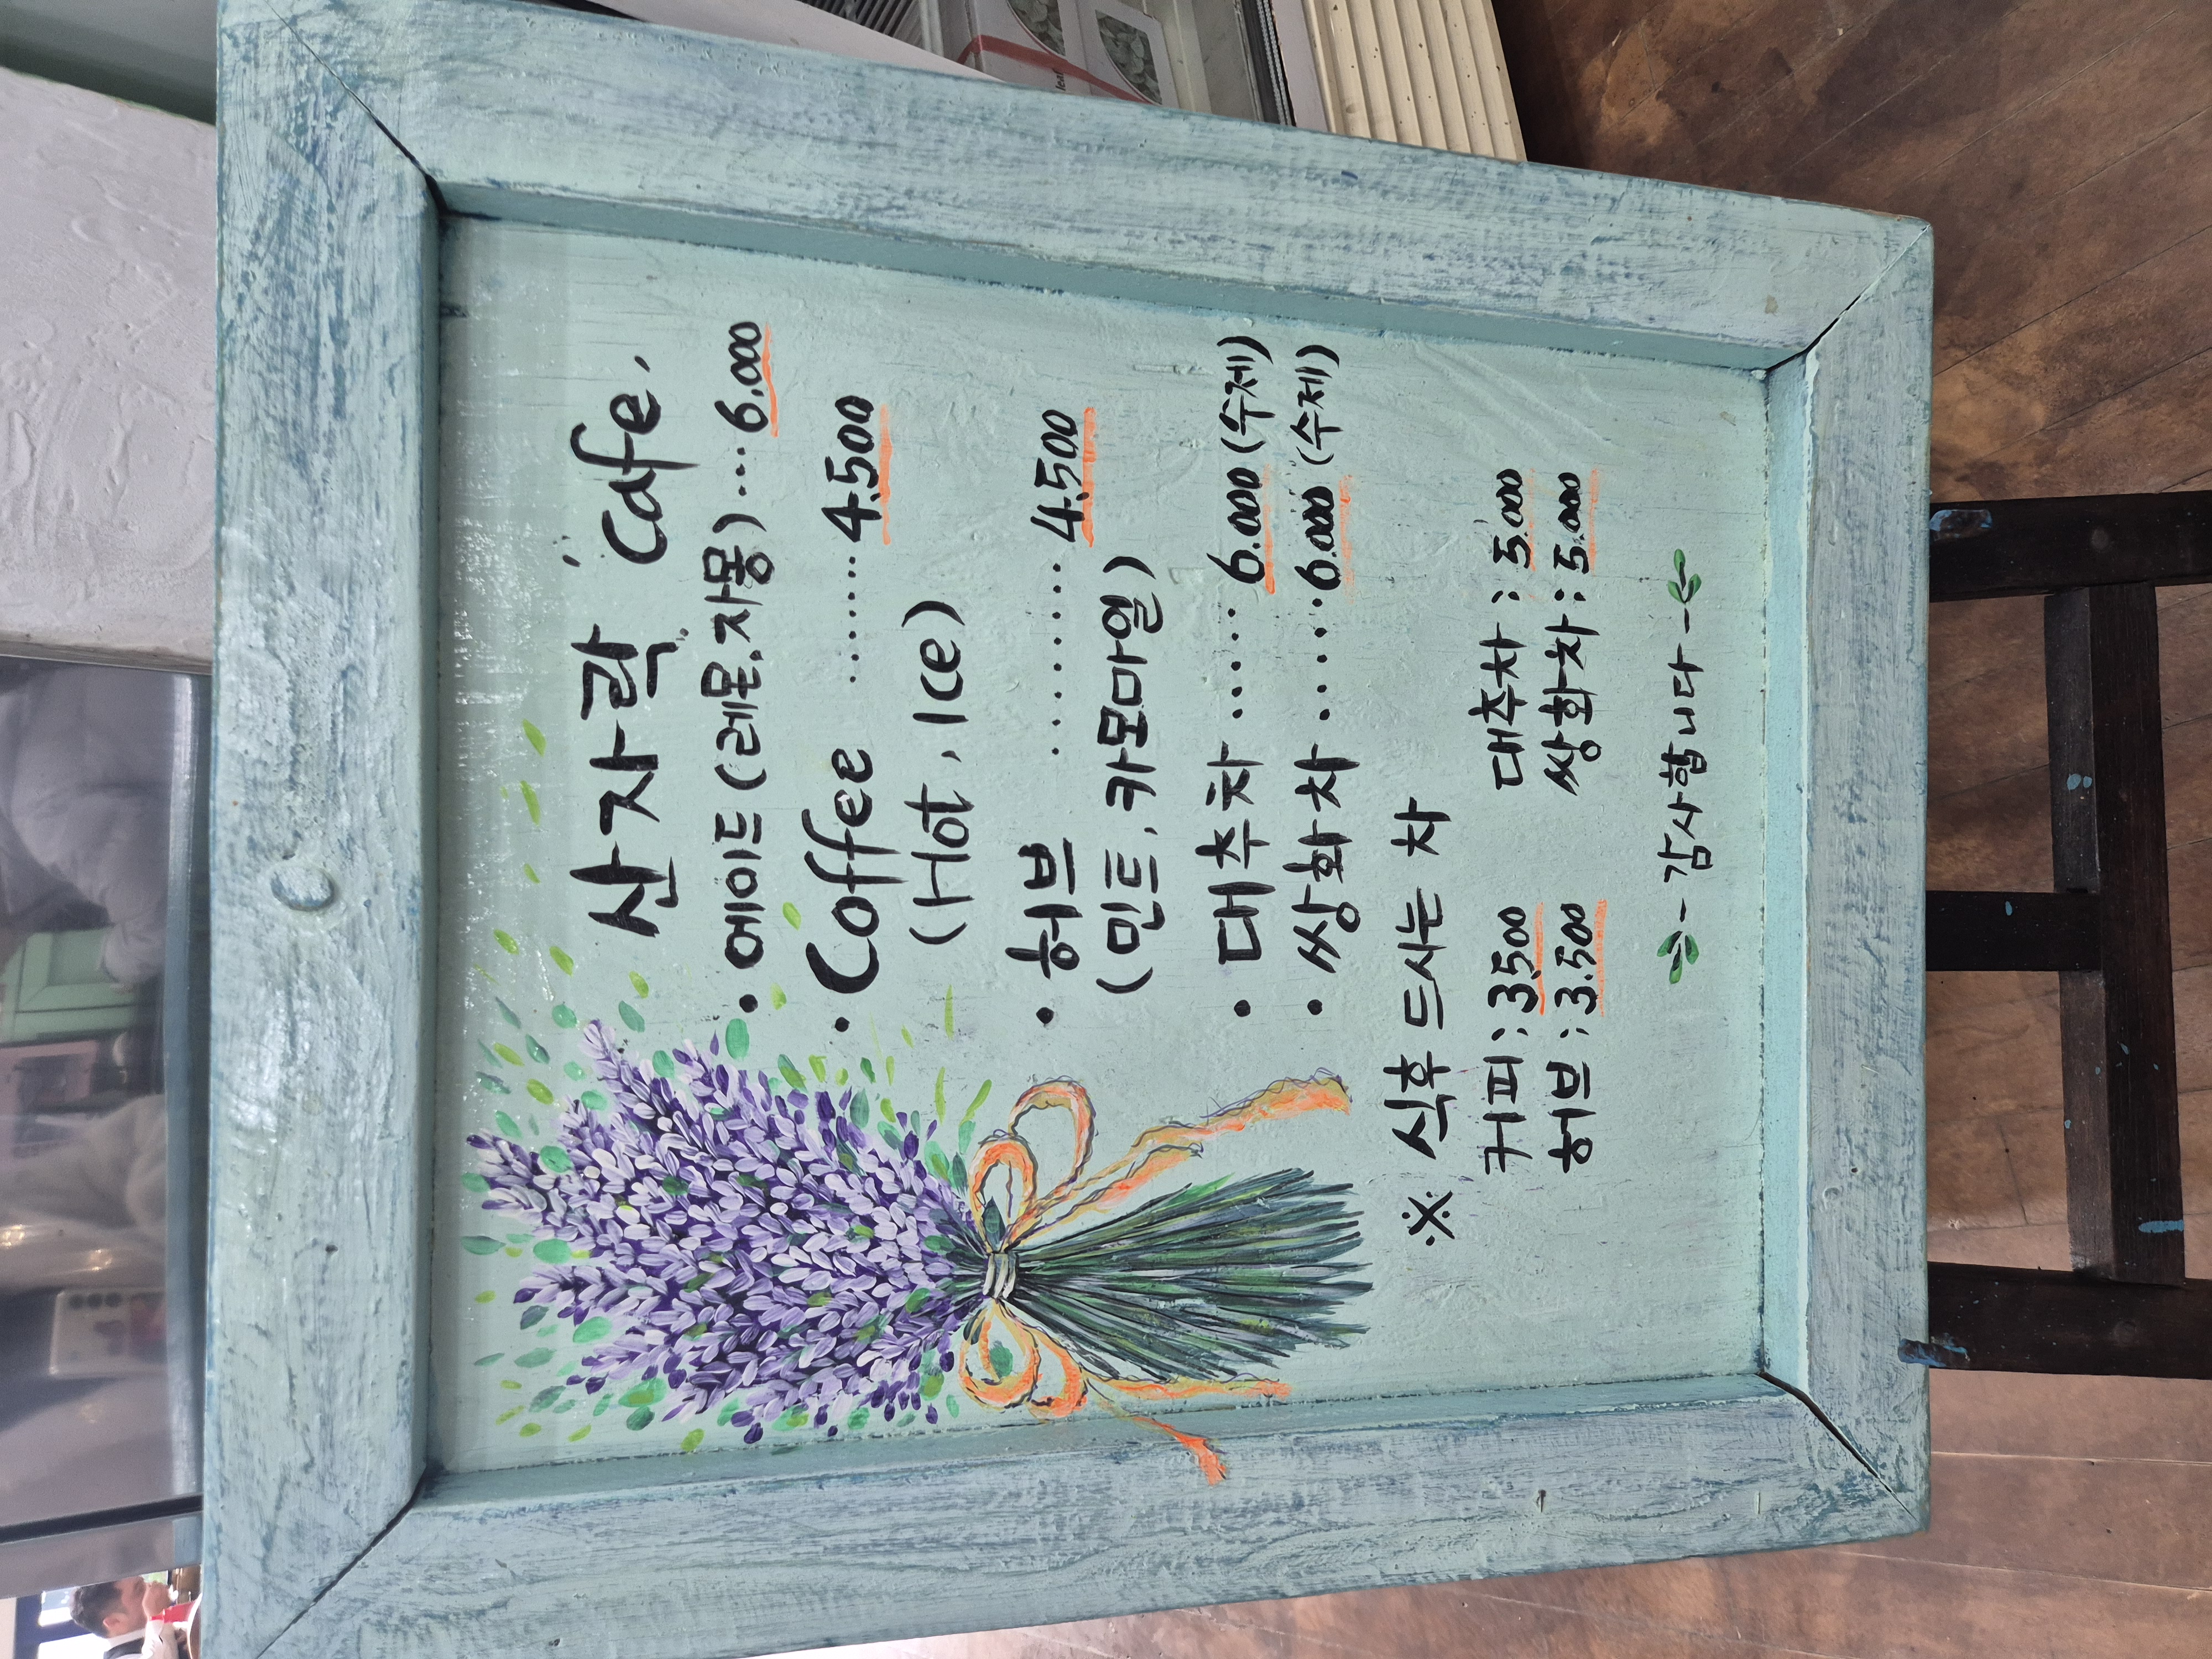 산자락 Cafe.
• 에이드 (레몬.자몽) ... 6.000
• Coffee ........ 4.500
(Hot, Ice)
• 허브 ........ 4.500
(민트. 카모마일)
• 대추차 ..... 6.000 (수제)
• 쌍화차 ..... 6.000 (수제)
※ 식후 드시는 차
커피 : 3.500 대추차 : 5.000
허브 : 3.500 쌍화차 : 5.000
- 감사합니다 -